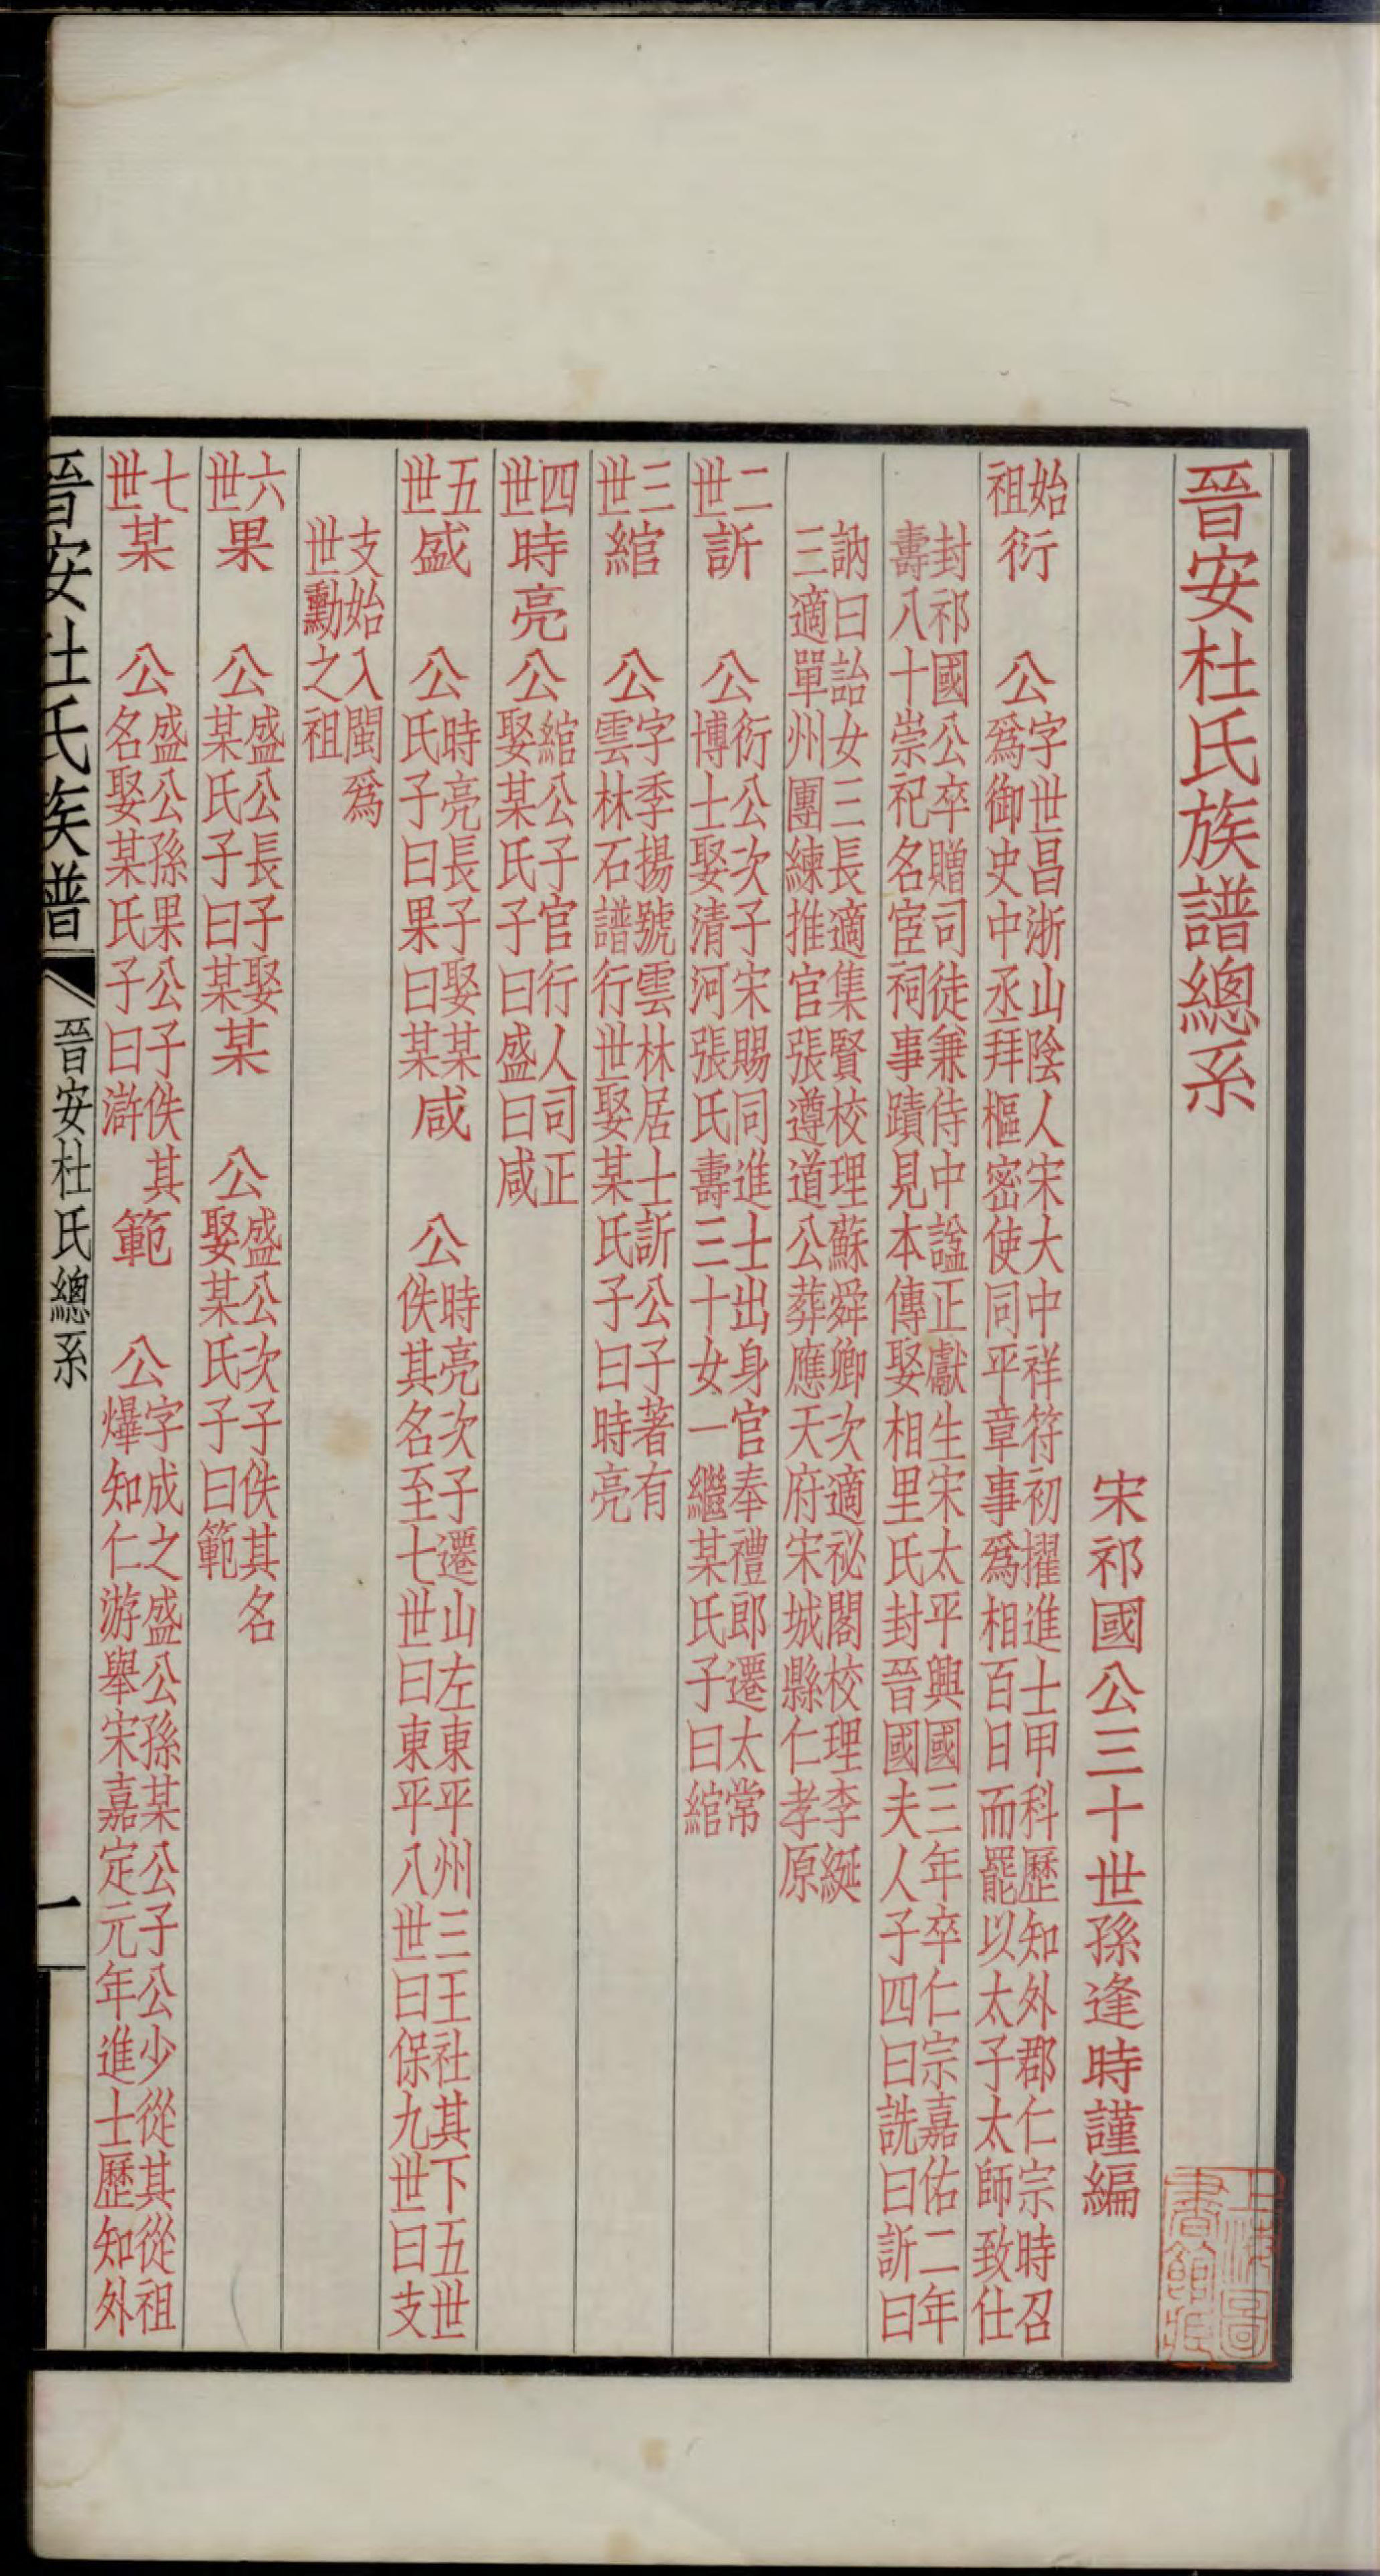 晉安杜氏族譜總系
宋祁國公三十世孫逢時謹編
始祖 衍 公字世昌浙山陰人宋大中祥符初擢進士甲科歷知外郡仁宗時召
爲御史中丞拜樞密使同平章事爲相百日而罷以太子太師致仕
封祁國公卒贈司徒兼侍中諡正獻生宋太平興國三年卒仁宗嘉佑二年
壽八十崇祀名宦祠事蹟見本傳娶相里氏封晉國夫人子四曰詵曰訢曰
訥曰詒女三長適集賢校理蘇舜卿次適祕閣校理李綖
三適單州團練推官張遵道公葬應天府宋城縣仁孝原
二世 訢 公衍公次子宋賜同進士出身官奉禮郎遷太常
博士娶清河張氏壽三十女一繼某氏子曰綰
三世 綰 公字季揚號雲林居士訢公子著有
雲林石譜行世娶某氏子曰時亮
四世 時亮 公綰公子官行人司正
娶某氏子曰盛曰咸
五世 盛 公時亮長子娶某
氏子曰果曰某
咸 公時亮次子遷山左東平州三王社其下五世
佚其名至七世曰東平八世曰保九世曰支
支始入閩爲
世勳之祖
六世 果 公盛公長子娶
某氏子曰某
某 公盛公次子佚其名
娶某氏子曰範
七世 某 公盛公孫果公子佚其
名娶某氏子曰滸
範 公字成之盛公孫某公子公少從其從祖
爗知仁游舉宋嘉定元年進士歷知外
晉安杜氏族譜
晉安杜氏總系
一
上海圖
書館藏